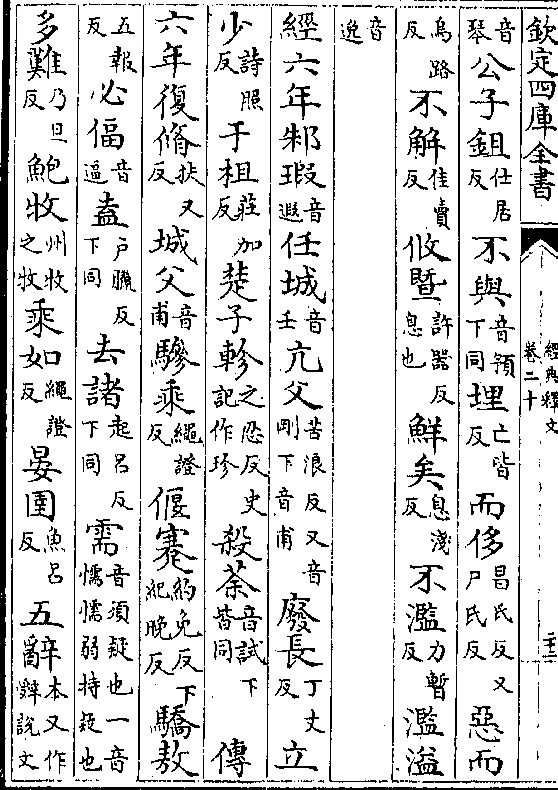 欽定四庫全書
經典釋文
卷二十
音琴公子鉏仕居反不與音預下同埋亡皆反而侈昌氏反又尸氏反惡而
烏路反不解佳賣反攸暨許器反息也鮮矣息淺反不濫力暫反濫溢
音逸
經六年邾瑕音遐任城音壬亢父苦浪反又音剛下音甫廢長丁丈反立
少詩照反于柤莊加反楚子軫之忍反史記作珍殺荼音試下皆同傳
六年復脩扶又反城父音甫驂乘繩證反偃蹇約免反下紀晚反驕敖
五報反必偪音逼盍戶臘反下同去諸起呂反下同需音須疑也一音懦懦弱持疑也
多難乃旦反鮑牧州牧之牧乘如繩證反晏圉魚呂反五辭本又作辤說文